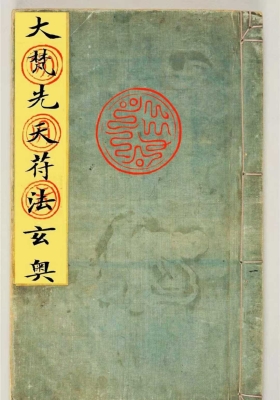 大梵先天符法玄奥